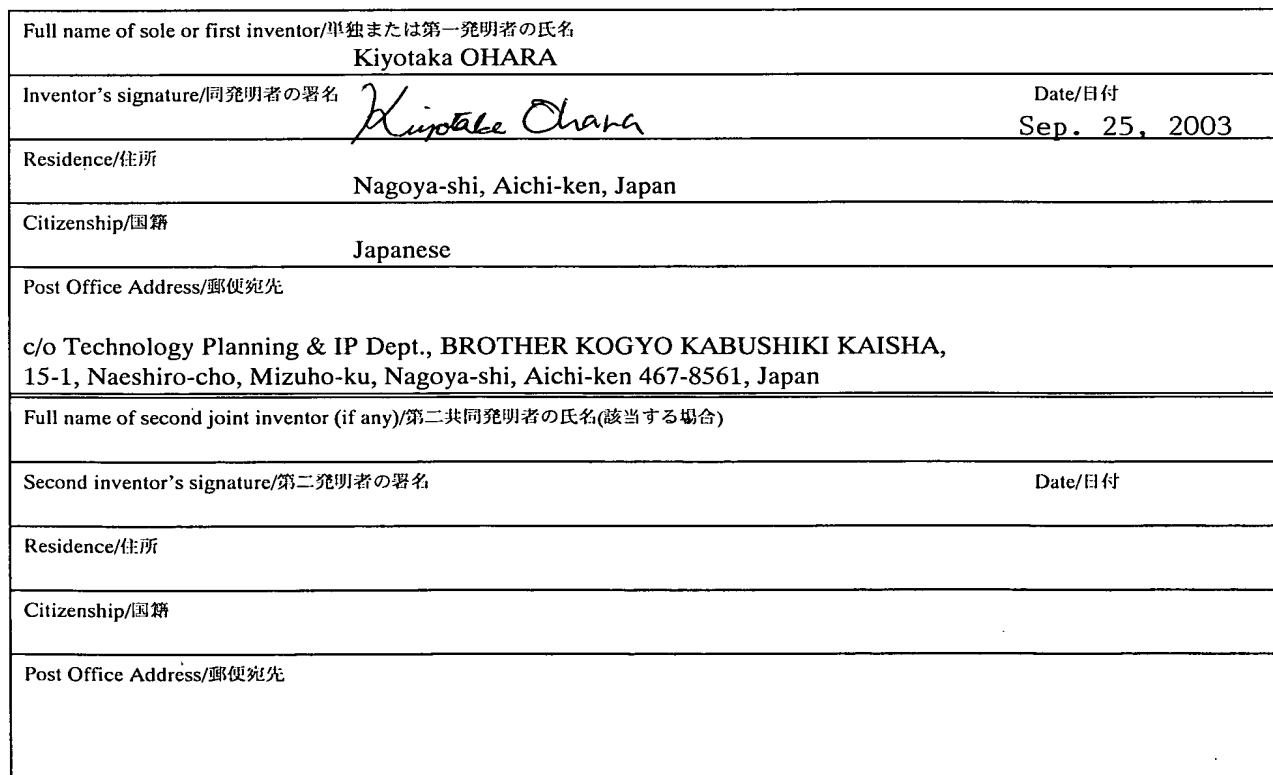 Full name of sole or first inventor/単独または第一発明者の氏名
Kiyotaka OHARA
Inventor's signature/同発明者の署名
Kiyotaka Ohara
Date/日付
Sep. 25, 2003
Residence/住所
Nagoya-shi, Aichi-ken, Japan
Citizenship/国籍
Japanese
Post Office Address/郵便宛先
c/o Technology Planning & IP Dept., BROTHER KOGYO KABUSHIKI KAISHA,
15-1, Naeshiro-cho, Mizuho-ku, Nagoya-shi, Aichi-ken 467-8561, Japan
Full name of second joint inventor (if any)/第二共同発明者の氏名(該当する場合)
Second inventor's signature/第二発明者の署名
Date/日付
Residence/住所
Citizenship/国籍
Post Office Address/郵便宛先